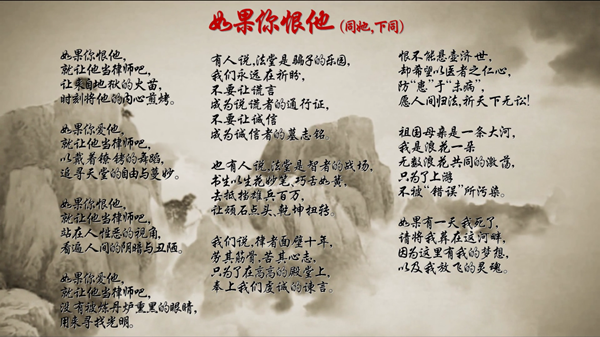 如果你恨他（同她,下同）
如果你恨他,
就让他当律师吧,
让来自地狱的火苗,
时刻将他的内心煎烤。
如果你爱他,
就让他当律师吧,
以戴着镣铐的舞蹈,
追寻天堂的自由与曼妙。
如果你恨他,
就让他当律师吧,
站在人性恶的视角,
看遍人间的阴暗与丑陋。
如果你爱他,
就让他当律师吧,
没有被炼丹炉熏黑的眼睛,
用来寻找光明。
有人说,法堂是骗子的乐园,
我们永远在祈盼,
不要让谎言
成为说谎者的通行证,
不要让诚信
成为诚信者的墓志铭。
也有人说,法堂是智者的战场,
书生以生花妙笔、巧舌如簧,
去抵挡雄兵百万,
让顽石点头、乾坤扭转。
我们说,律者面壁十年,
劳其筋骨、苦其心志,
只为了在高高的殿堂上,
奉上我们虔诚的谏言。
恨不能悬壶济世,
却希望以医者之仁心,
防“患”于“未病”,
愿人间归法,祈天下无讼!
祖国母亲是一条大河,
我是浪花一朵
无数浪花共同的激荡,
只为了上游
不被“错误”所污染。
如果有一天我死了,
请将我葬在这河畔,
因为这里有我的梦想,
以及我放飞的灵魂。